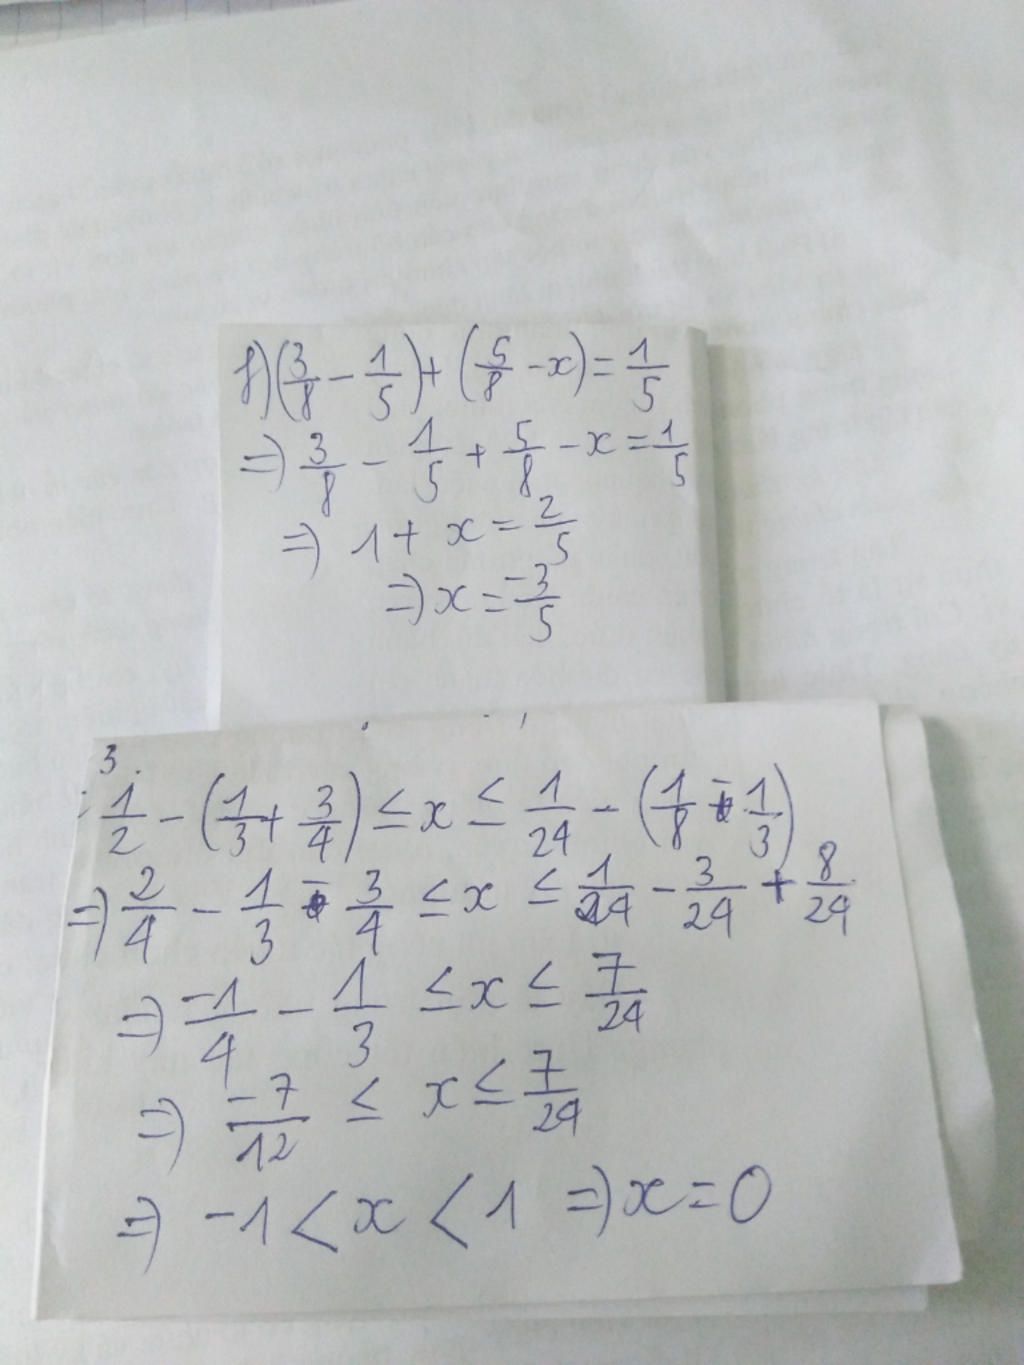 f) (3/8 - 1/5) + (5/8 - x) = 1/5
=> 3/8 - 1/5 + 5/8 - x = 1/5
=> 1 + x = 2/5
=> x = -3/5
3.
1/2 - (1/3 + 3/4) ≤ x ≤ 1/24 - (1/8 - 1/3)
=> 2/4 - 1/3 - 3/4 ≤ x ≤ 1/24 - 3/24 + 8/24
=> -1/4 - 1/3 ≤ x ≤ 7/24
=> -7/12 ≤ x ≤ 7/24
=> -1 < x < 1 => x = 0